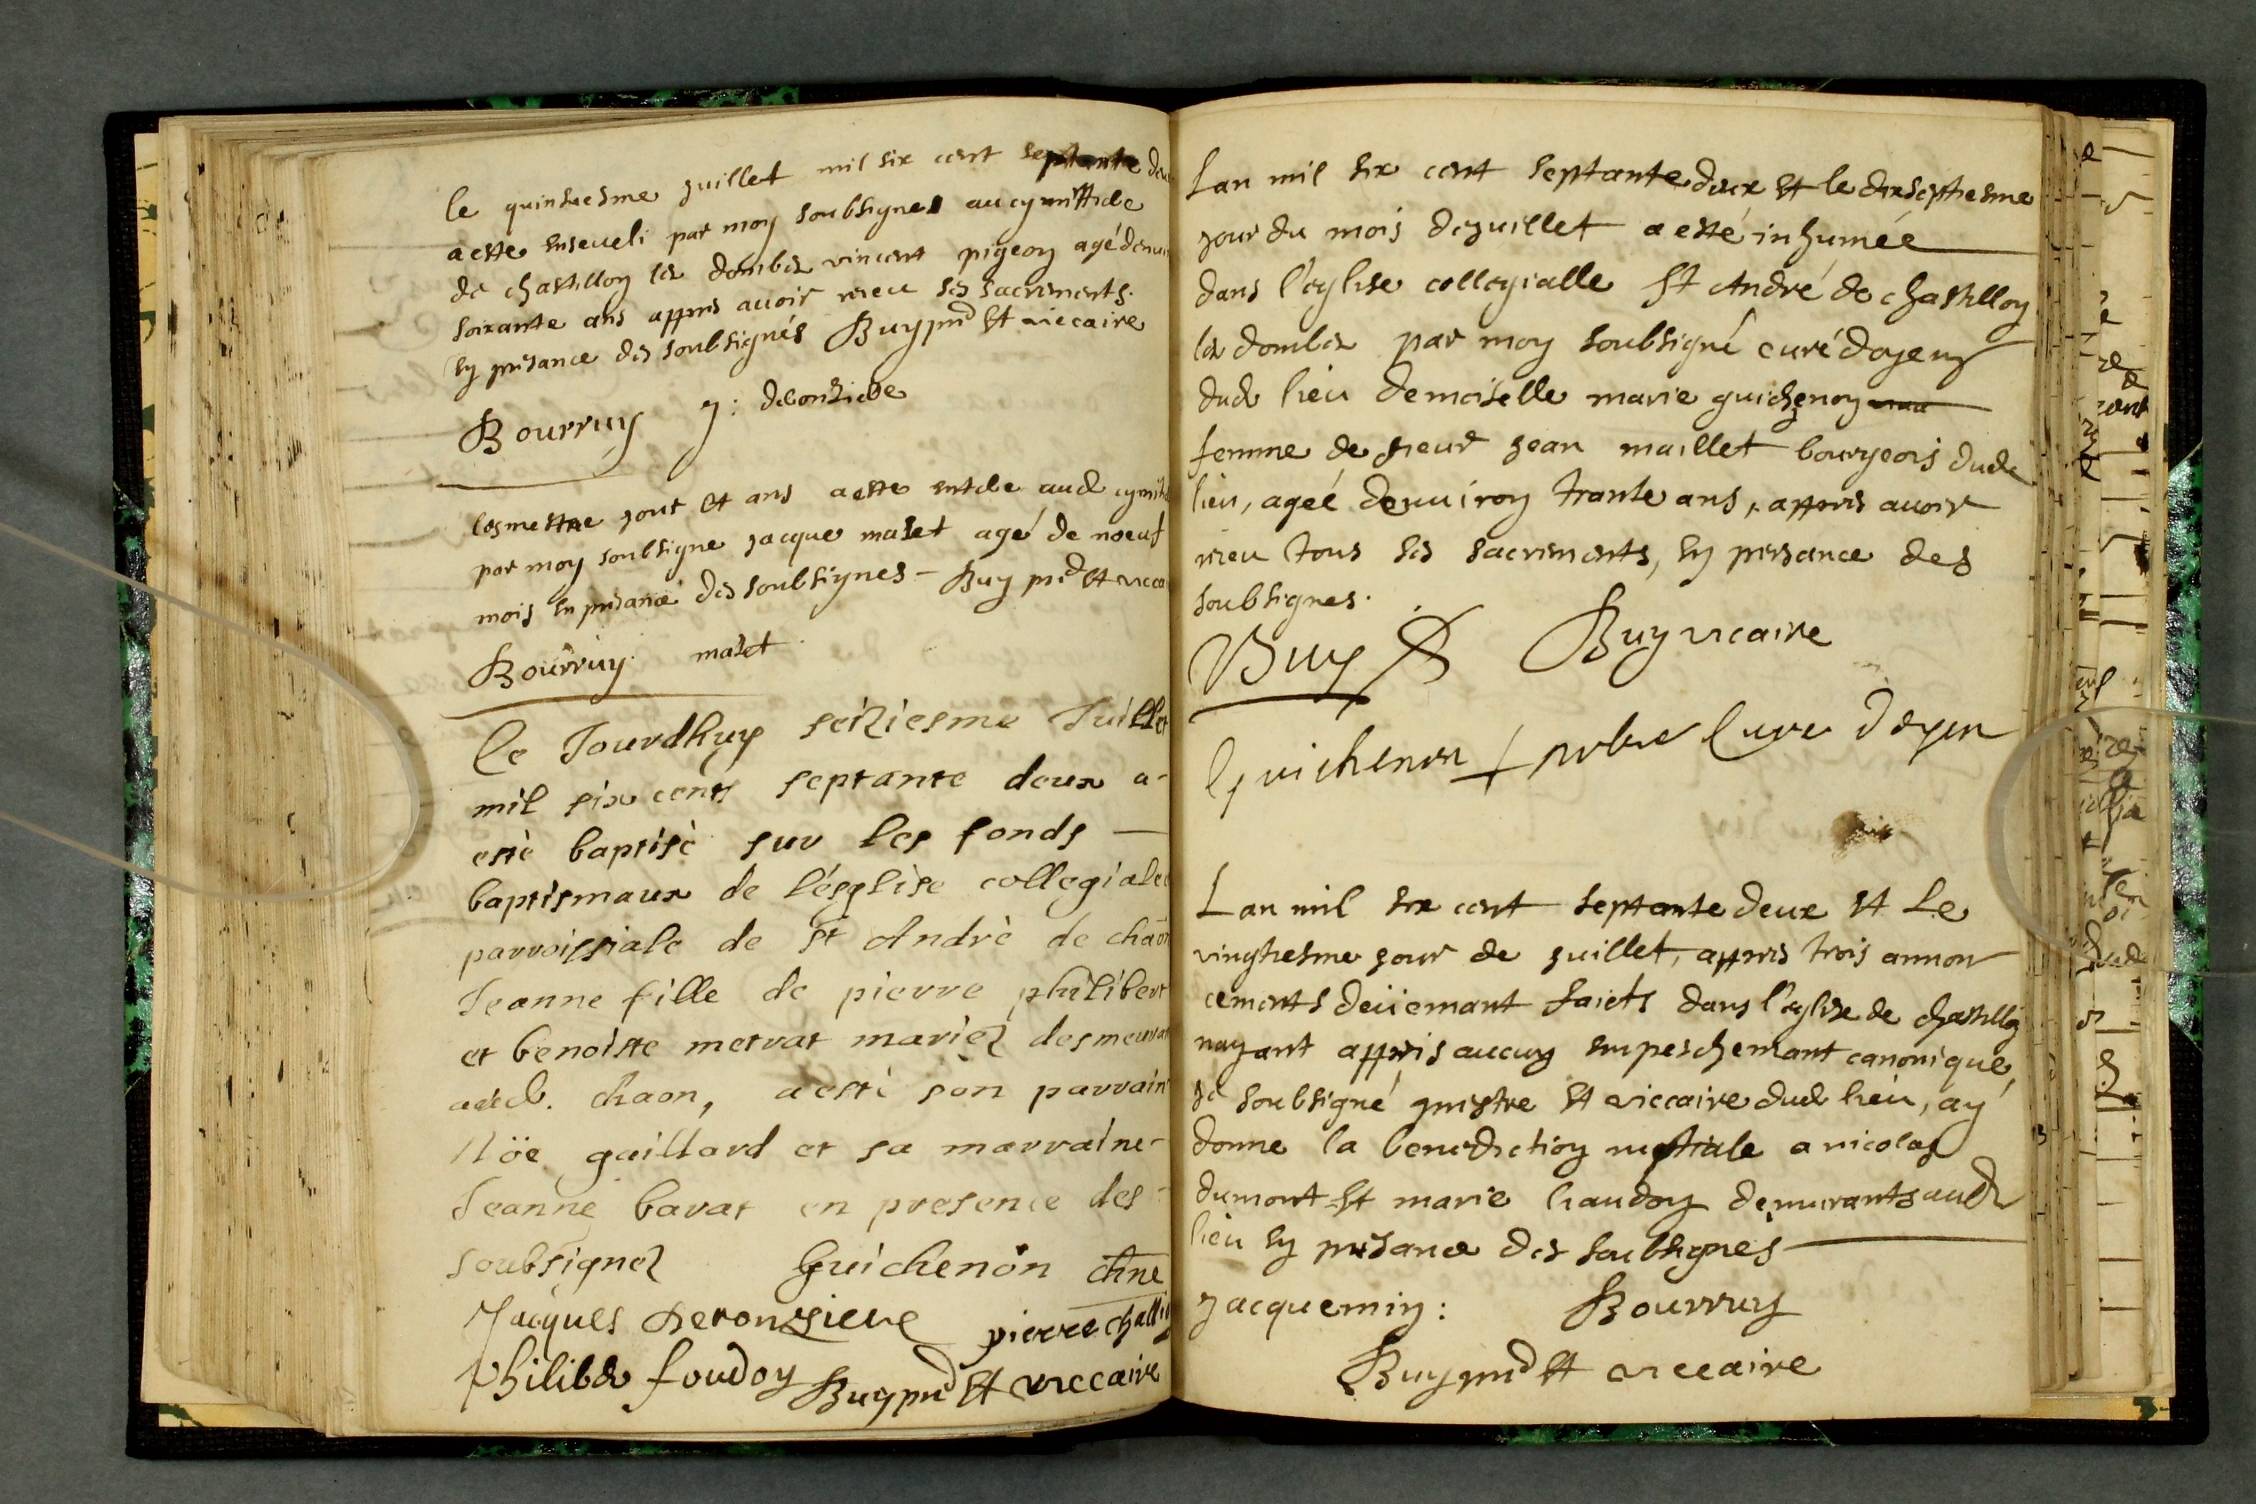 le quinsiesme juillet mil six cent septante deux
a este enseueli par moy soubsigne au cymittiele
de chastillon les dombes vincent pigeon agé denui
soixante ans appres auoir receu ses sacrements
en presance des soubsignés Buy prd et viccaire
Bourruy J: deronziere
Les mesme jour et ans a este au cymit
par moy soubsigne jacque maset agé de noeuf
mois en presance des soubsignes - Buy prd et vicca
Bourruy maset
Ce Jourdhuy seiziesme Juillet
mil six cents septante deux a-
esté baptisè sur les fonds
baptismaux de l'ésglise collegiale
parroissiale de st Andrè de chaon
Jeanne fille de pierre philibert
et benoiste metrat mariez desmeurat
aud. chaon, a esté son parrain
Nöe gaillard et sa marraine-
Jeanne barat en presence des
soubsignez Guichenon
Jacques Deronziere pierre
Philiber foudoy Buy prd et viccaire
Lan mil six cent septante deux et le dixseptiesme
jour du mois de juillet a esté inhumée
dans l'eglise collegialle st André de chastillon
les dombes par moy soubsigné curé doyen
dud lieu Demoiselle marie guichenon
femme de sieur jean maillet bourgeois dud
lieu, ageé denuiron trante ans, appres auoir
receu tous ses sacrements, en presance des
soubsignes.
Buy Buy vicaire
Guichenon pbre Cure Doyen
Lan mil six cent septante deux et Le
vingtiesme jour de juillet, appres trois annon
cements deüemant faicts dans l'eglise de chastillon
nayant appris aucun empeschemant canonique,
je soubsigné et viccaire dud lieu, ay
donne la benediction nuptiale a nicolas
dumont et marie liaudon demurants aud
lieu en presance des soubsignes
jacquemin: Bourruy
Buy prd et viccaire